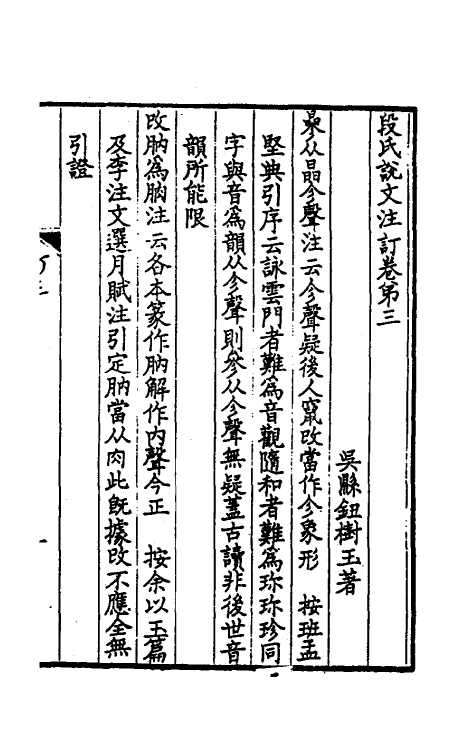 段氏說文注訂卷第三
吳縣鈕樹玉著
曑从晶㐱聲注云㐱聲疑後人竄改當作㐱象形 按班孟
堅典引序云詠雲門者難為音觀隨和者難為珎珎珍同
字與音為韻从㐱聲則參从㐱聲無疑蓋古讀非後世音
韻所能限
改肭為朒注云各本篆作肭解作内聲今正 按余以玉篇
及李注文選月賦注引定肭當从肉此旣據改不應全無
引證